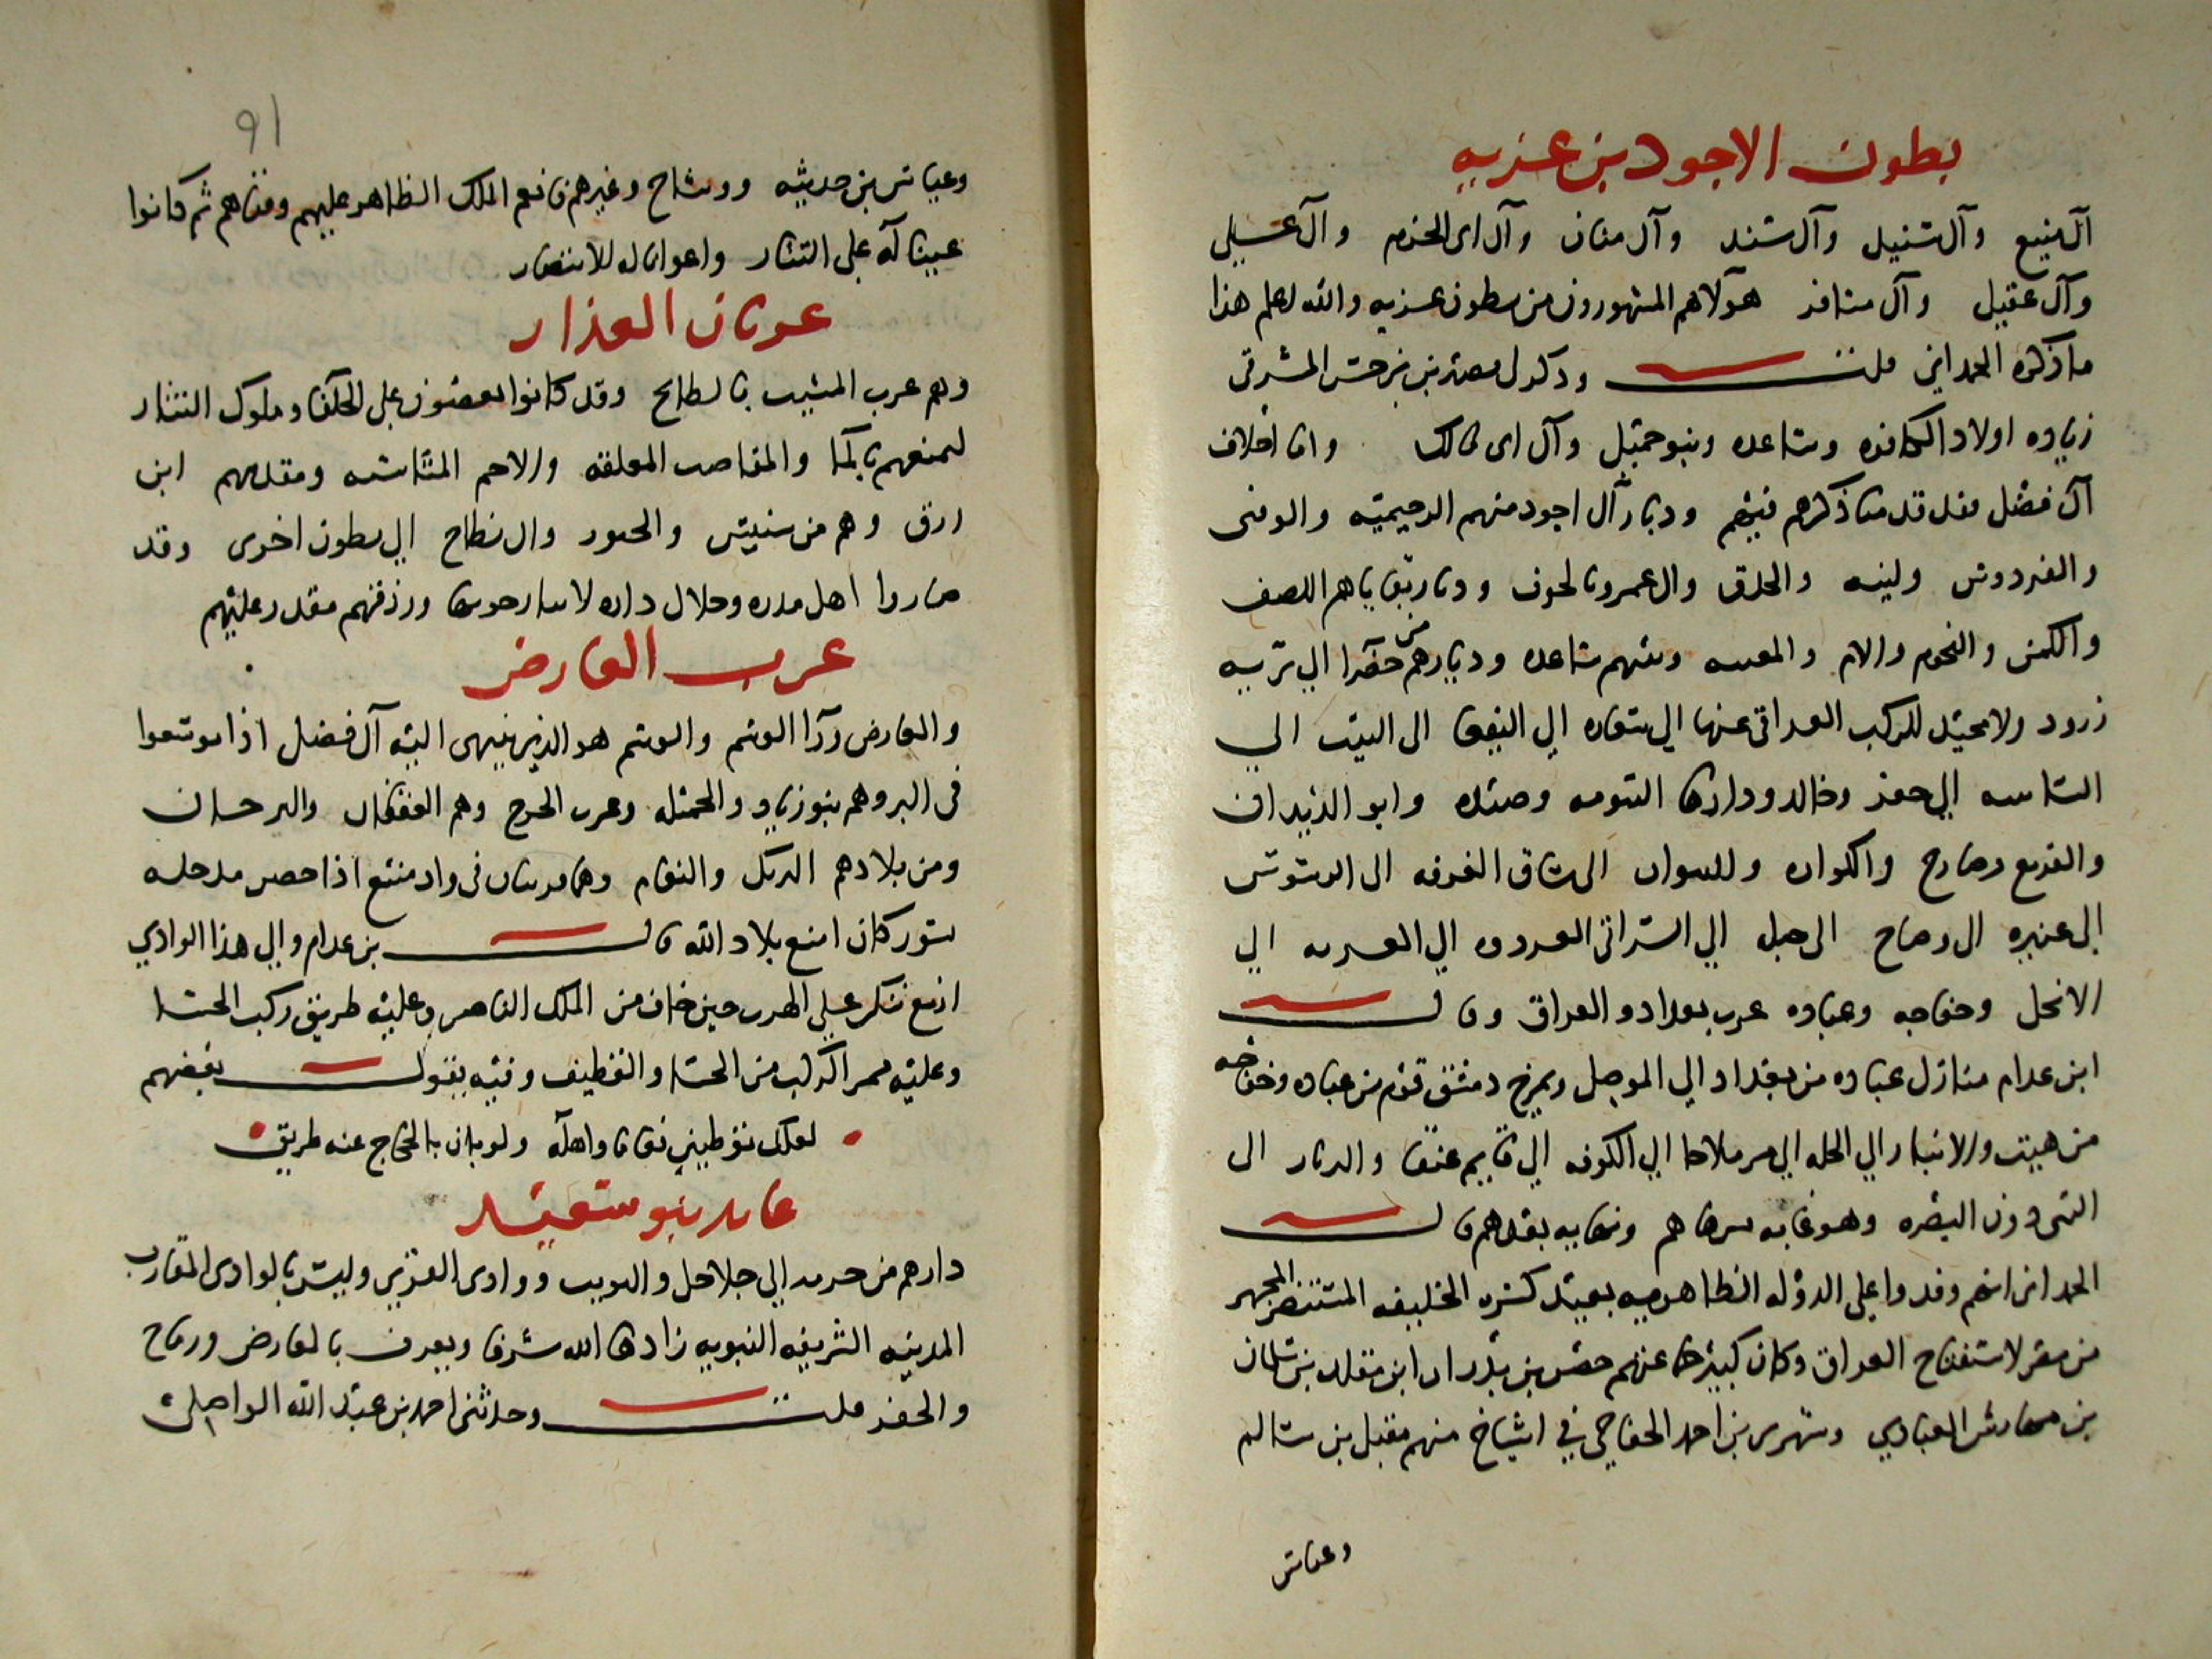 بطون الاجود بن غزيه
آل منيع وآل سنيل وآل سند وآل منان وآل ابى الحزم وآل على
وآل عقيل وآل مسافر هولاهم المشهورون من بطون غزيه والله اعلم هذا
ما ذكره الحمدانى قلت وذكر لى نصير بن برجس المشرقى
زياده اولاد الكافره وساعده وبنو جميل وآل ابى مالك واما اخلاف
آل فضل فقد قدمنا ذكرهم فيهم وديار آل اجود منهم الرخيميه والوقبى
والفردوس ولينه والحدق وال عمرو بالجوف وديار بقاياهم اللصف
والكمن والنحوم والام والمغيثه ومنهم ساعده وديارهم من حضرا الي تربه
زرود ولا محيد للركب العراقى عنها الي سقاره الي البقعا الى البيب الى
الساسه الي حفر وخالد ودارها التنومه وضيده وابو الديدان
والقريع وضارج والكواره والنبوان الى ساق الغرفه الى الرسوس
الى عنيزه الى وضاح الى جبله الي السر الى العردوه الي العسريه الي
الانجل وخفاجه وعباده عرب بغداد والعراق وقال
ابن عرام منازل عباده من بغداد الي الموصل وبمرج دمشق قوم من عباده وخفاجه
من هيت والانبار الي الحله الي سرملاحا الي الكوفه الي قايم عنقا والديار الى
التى دون البصره وهو غايه سرهاهم ونهايه بعدهم قال
الحمدانى انهم وفدوا على الدوله الظاهريه بعيد كسره الخليفه المستنصر المجهز
من مصر لاستفتاح العراق وكان كبيرها عنهم خضر بن بدران ابن مقلد بن سلمان
بن مهارش العبادي وشهرى بن احمد الخفاجى في اشياخ منهم مقبل بن سالم
وعياش
91
وعياش بن حديثه ووشاح وغيرهم فانعم الملك الظاهر عليهم ووفاهم ثم كانوا
عينا له على التتار واعوانا له للانتصار
عربان العذار
وهم عرب المشيب بالبطايح وقد كانوا يعصون على الخلفا وملوك التتار
لمنعهم بالما والمقاصب المعلقه والاجم المتاشبه ومقدمهم ابن
ازرق وهم من سنبس والجبور وال نطاح الي بطون اخرى وقد
صاروا اهل مدره وحلال داره لا سارحون بها ورزقهم مقدر عليهم
عرب العارض
والعارض ورآ الوشم والوشم هو الذى ينتهى اليه آل فضل اذا توسعوا
فى البر وهم بنو زياد والجميله وعرب الخرج وهم العقفان والبرجان
ومن بلادهم البريك والنعام وهما قريتان فى واد منيع اذا حصر مدخله
بسور كان امنع بلاد الله قال بن عرام والى هذا الوادي
ازمع تنكز على الهرب حين خاف من الملك الناصر وعليه طريق ركب الحسا
وعليه ممر الركب من الحسا والقطيف وفيه يقول بعضهم
لعلك توطينى نعاما واهله ولو بان بالحجاج عنه طريق
عايد بنو سعيد
دارهم من حرمه الي جلاجل والتويم ووادى القرى وليس بالوادى المقارب
المدينه الشريفه النبويه زادها الله شرفا ويعرف بالعارض ورماح
والحفر قلت وحدثنى احمد بن عبد الله الواصلى